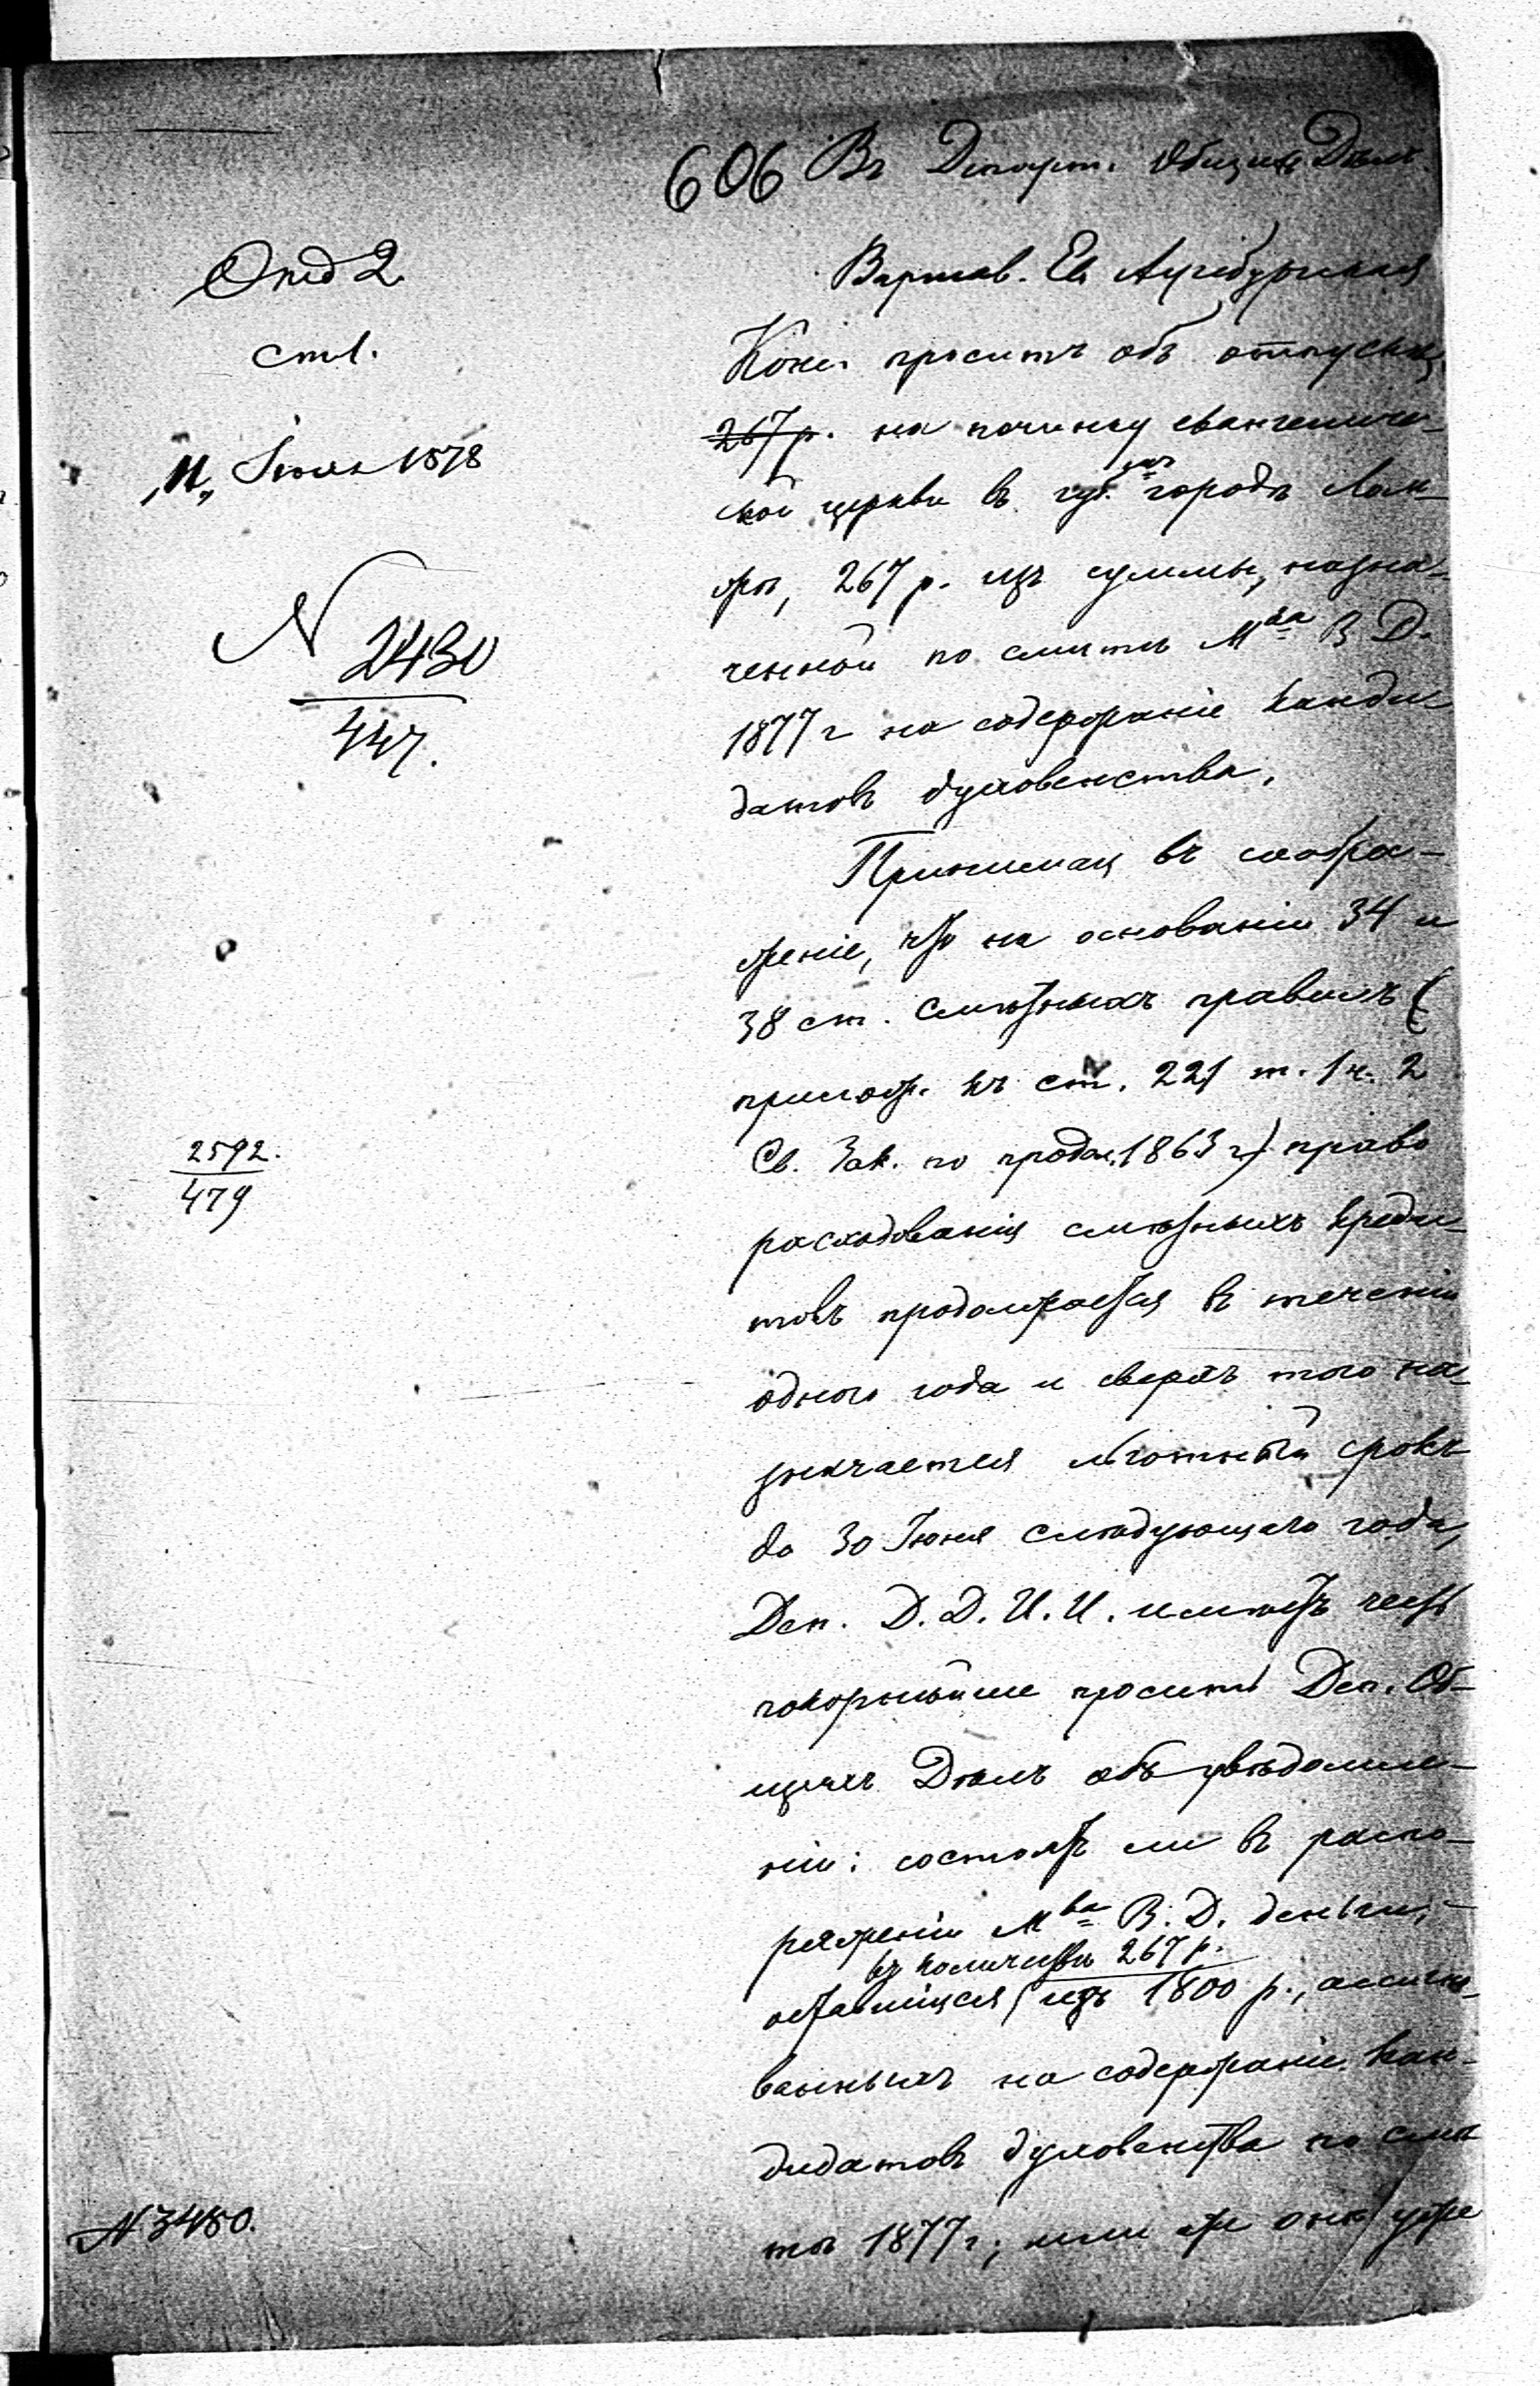 606 Въ Департ. Общихъ Дѣлъ
Отд 2.
ст 1.
"11" Іюля 1878
N 2430
447.
2592.
479
N 3480.
Варшав. Ев. Аугсбургская
Конс. проситъ объ отпускѣ
267 р. на починку евангеличе-
ской церкви въ губ.мъ городѣ Лом-
жѣ, 267 р. изъ суммы, назна-
ченной по смѣтѣ Мва В Д.
1877 г на содержаніе канди-
датовъ духовенства.
Принимая въ сообра-
женіе, что на основаніи 34 и
38 ст. смѣтныхъ правилъ (
прилож. къ ст. 221 т. 1 ч. 2
Св. Зак. по продол. 1863 г) право
расходованія смѣтныхъ креди-
товъ продолжается въ теченіи
одного года и сверхъ того на-
значается льготный срокъ
до 30 Іюня слѣдующаго года,
Деп. Д. Д. И. И. имѣетъ честь
покорнѣйше просить Деп. Об-
щихъ Дѣлъ объ увѣдомле-
ніи: состоятъ ли въ распо-
ряженіи Мва В. Д. деньги,
въ количествѣ 267 р.
оставшіяся изъ 1800 р., ассигно-
ванныхъ на содержаніе кан-
дидатовъ духовенства по смѣ-
тѣ 1877 г; или же онѣ уже